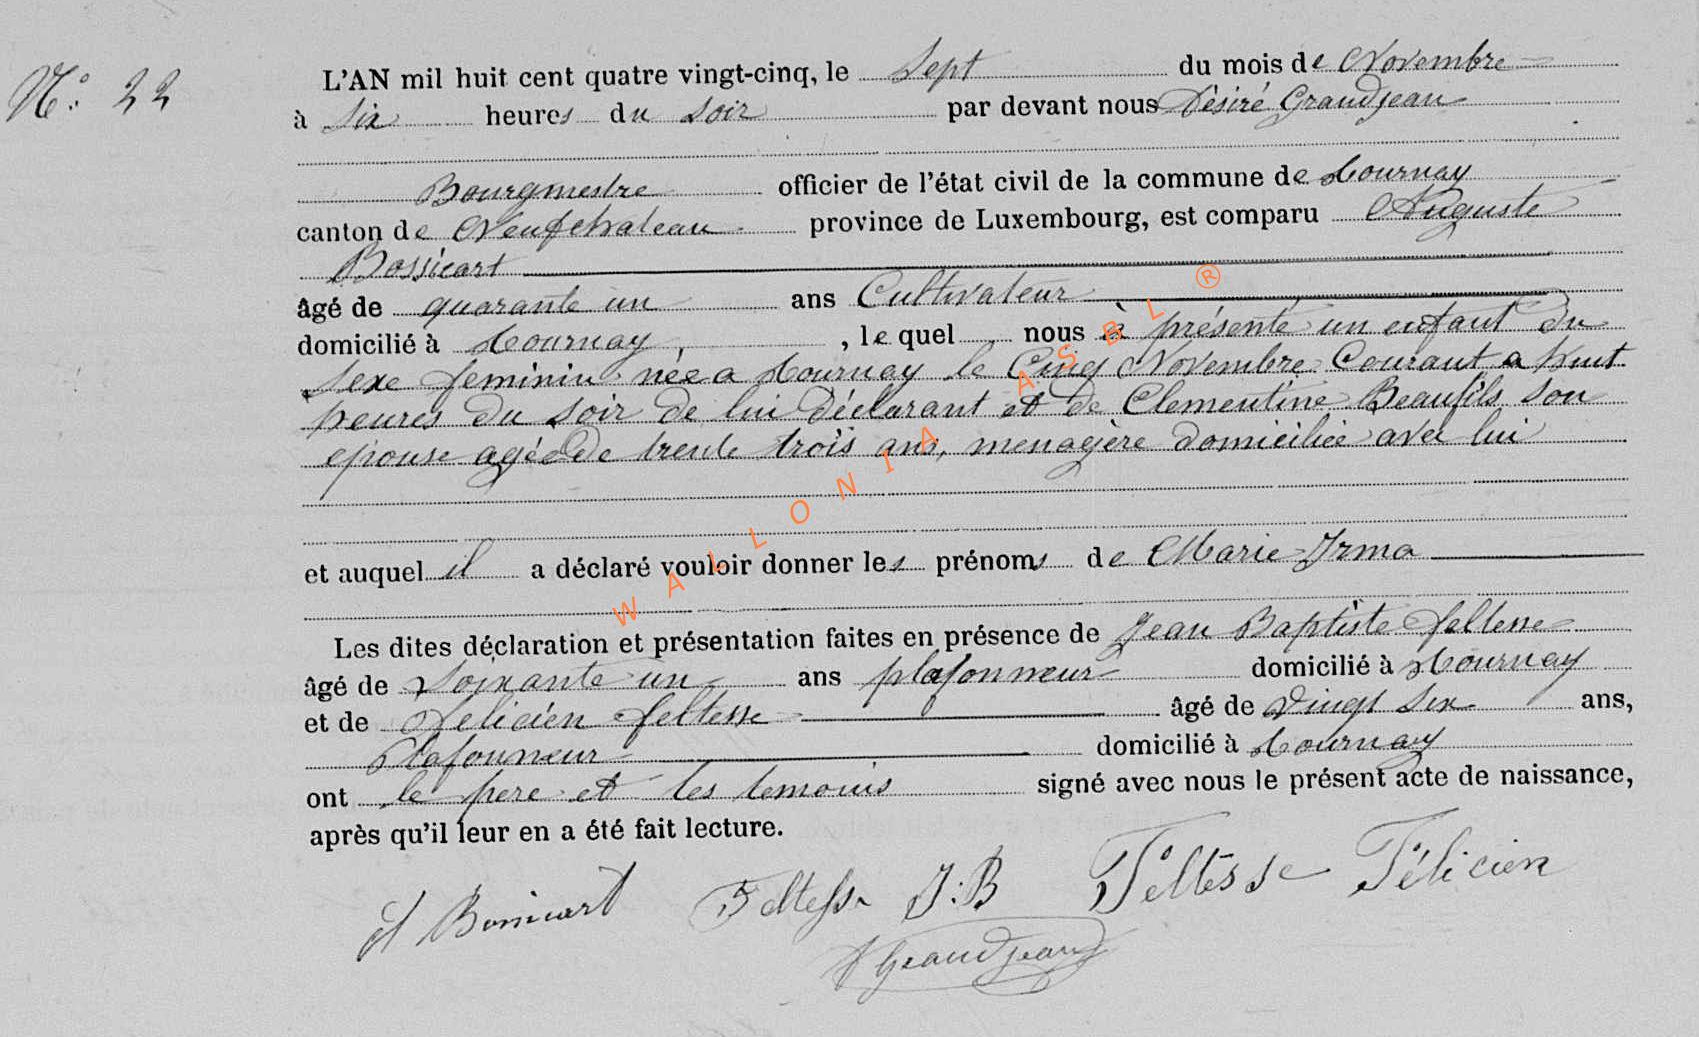 N° 22
L'AN mil huit cent quatre vingt-cinq, le Sept du mois de Novembre
à Six heures du soir par devant nous Désiré Grandjean
Bourgmestre officier de l'état civil de la commune de Tournay
canton de Neufchateau province de Luxembourg, est comparu Auguste
Bossicart
âgé de quarante un ans Cultivateur
domicilié à Tournay, le quel nous à présenté un enfant du
sexe feminin née a Tournay le Cinq Novembre Courant a huit
heures du soir de lui déclarant et de Clementine Beaufils son
epouse agée de trente trois ans, menagère domiciliée avec lui
et auquel il a déclaré vouloir donner les prénoms de Marie Irma
Les dites déclaration et présentation faites en présence de Jean Baptiste Feltesse
âgé de Soixante un ans plafonneur domicilié à Tournay
et de Félicién Feltesse âgé de Vingt Six ans,
Plafonneur domicilié à Tournay
ont le pere et les temoins signé avec nous le présent acte de naissance,
après qu'il leur en a été fait lecture.
A Bossicart Feltesse J:B Feltesse Félicien
D Grandjean
WALLONIA ASBL ®